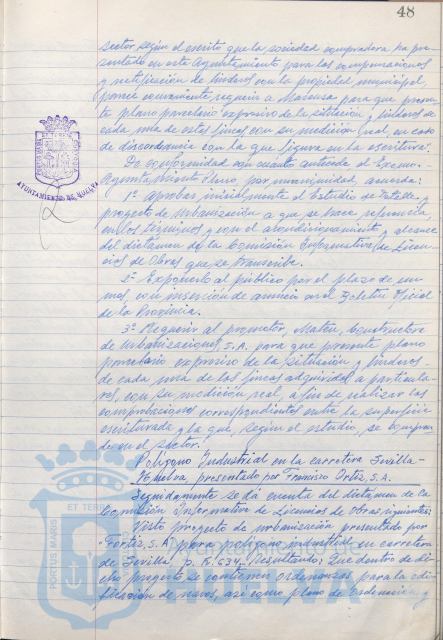 48
sector según el escrito que la sociedad compradora ha pre-
sentado en este Ayuntamiento para las compensaciones
y rectificación de linderos con la propiedad municipal,
parece conveniente requerir a Matensa para que presen-
te plano parcelario expresivo de la situación y linderos de
cada una de estas fincas con su medición real, en caso
de discordancia con la que figura en la escritura.
De conformidad con cuanto antecede el Excmo.
Ayuntamiento Pleno, por unanimidad, acuerda:
1º Aprobar inicialmente el Estudio de Detalle y
proyecto de Urbanización a que se hace referencia,
en los términos y con el acondicionamiento y alcance
del dictamen de la Comisión Informativa de Licen-
cias de Obras que se transcribe.
2º Exponerlo al público por el plazo de un
mes, con inserción de anuncio en el Boletín Oficial
de la Provincia.
3º Requerir al promotor, Constructora
de Urbanizaciones, S.A. para que presente plano
parcelario expresivo de la situación y linderos
de cada una de las fincas adquiridas a particula-
res, con su medición real, a fin de realizar las
comprobaciones correspondientes entre la superficie
escriturada y la que, según el estudio, se compren-
de en el sector.
Polígono Industrial en la carretera Sevilla-
Huelva, presentado por Francisco Ortiz, S.A.
Seguidamente se dá cuenta del dictamen de la
Comisión Informativa de Licencias de Obras siguiente:
"Visto proyecto de urbanización presentado por
S.A. para polígono industrial en carretera
de Sevilla, p.K. 634. Resultando: Que dentro de di-
cho proyecto se contienen ordenanzas para la edi-
ficación de naves, así como plano de Ordenación y
AYUNTAMIENTO DE HUELVA
PORTUS MARIS
ET TERRAE
Ayuntamiento de
HUELVA